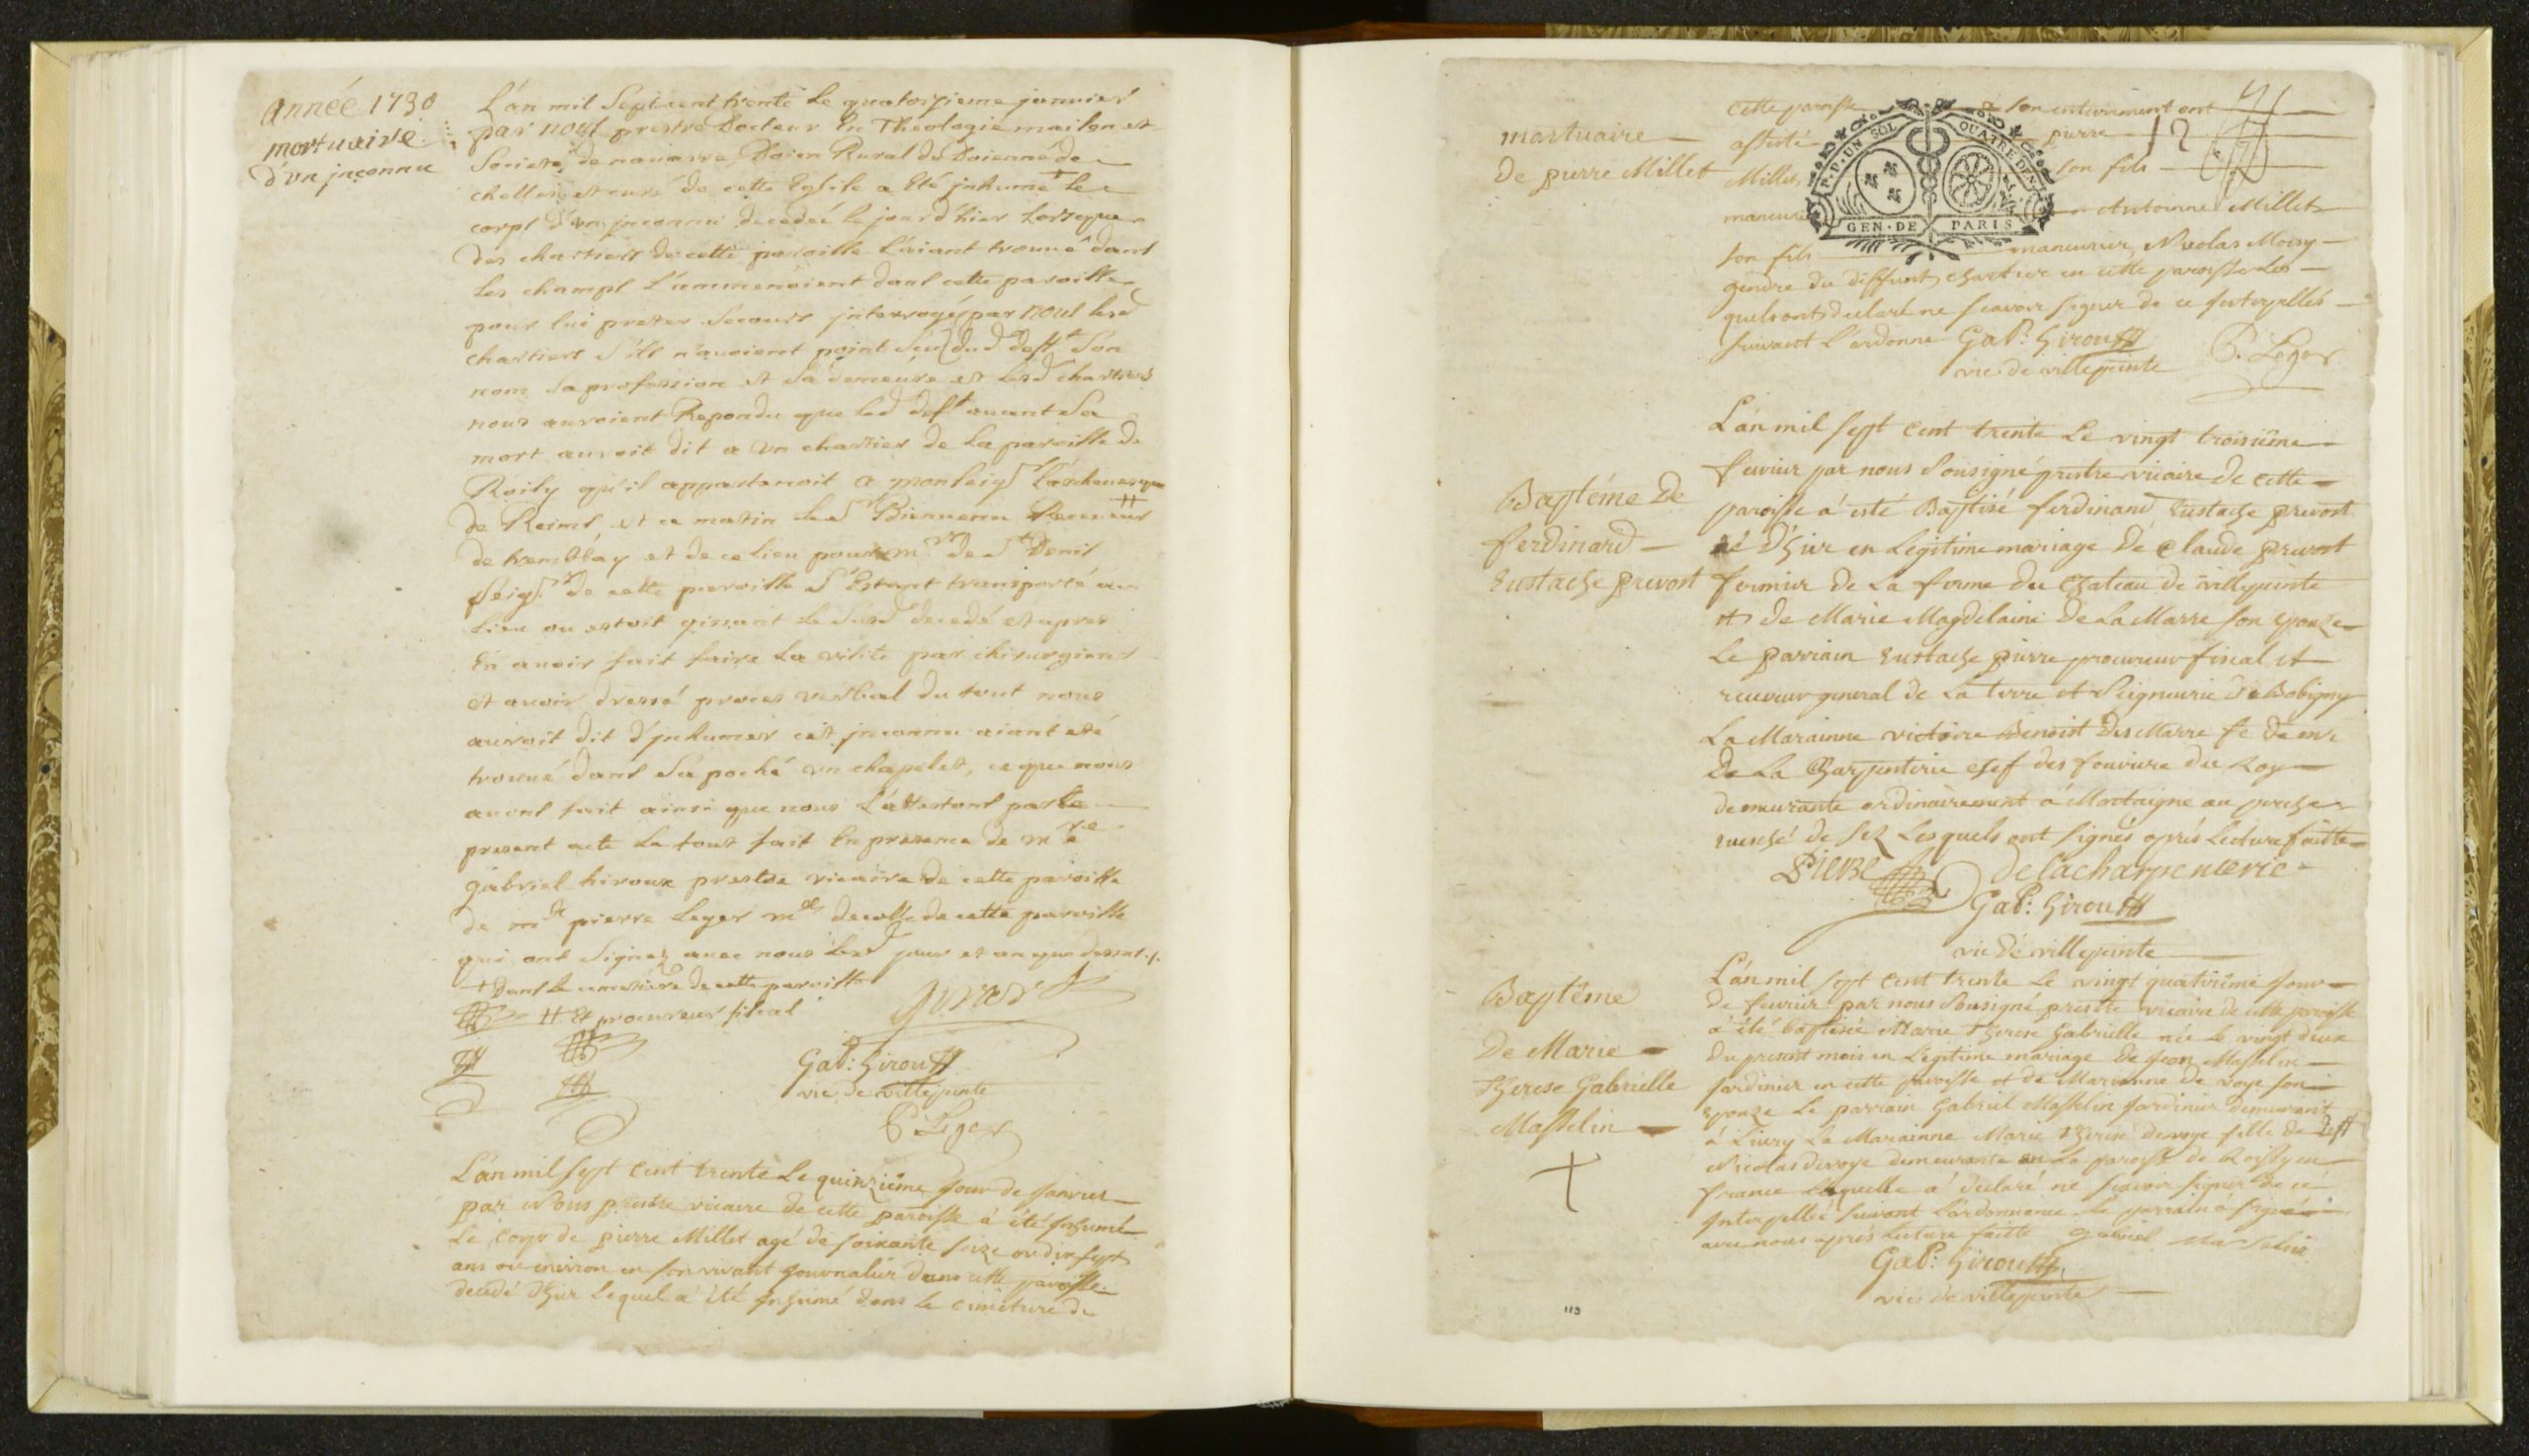 année 1730
mortuaire
d'vn jnconnu
L'án mil Sept cent trente le quatorzieme januier
par nous prestre Docteur En Theologie maison et
Societé de nauarre Doien Rural du Doienné de
chelles et curé de cette Eglise a Eté jnhumé + le
corps d'vn jnconnu decedeé le jour d'hier Lorsque
des chartiers de cette paroisse L'aiant trouué dans
les champs L'ammenoient dans cette paroisse
pour lui prester Secours jnterrogés par nous lesd
chartiers S'ils n'auoient point Sçu dud deff.t Son
nom Sa profession et Sa demeure et lesd chartiers
nous auroient Repondu que led deft auant Sa
mort auroit dit a vn chartier de la paroisse de
Roisy qu'il appartenoit a monseigr L'archeuesque
de Reims, et ce matin led Sr Bienuenu Receueur #
de tremblay et de ce lieu pour mr de St Denis
Seigr de cette paroisse S'Estant transporté au
lieu ou estoit gissant le Susd decedé et apres
En auoir fait faire la visite par chirurgiens
et auoir dressé proces verbal du tout nous
auroit dit d'jnhumer cet jnconnu aiant esté
trouué dans Sa poché vn chapelet, ce que nous
auons fait ainsi que nous L'attestons par le
present acte Le tout fait En presence de me
gabriel hiroux prestre vicaire de cette paroisse
de me pierre Leger me decolle de cette paroisse
qui ont Signez auec nous lesd jour et an que dessus ./.
+ dans le cimetiere de cette paroisse
# Et procureur fiscal
Gab: hiroux
vic. de villepinte
P. Leger
L'án mil sept cent trente le quinziéme jour de januier
par Nous prestre vicaire de cette paroisse á été jnhumé
Le corps de pierre Millet agé de soixante seize ou dix sept
ans ou environ en son vivant journalier dans cette paroisse
decedé d'hier lequel a été jnhumé dans le cimetiere de
mortuaire
De pierre Millet
cette paroisse a son enterrement ont
assisté pierre 12
Millet son fils
maneuvrier Antoinne Millet
son fils maneuvrier, Nicolas Moisy
gendre du deffunt chartier en cette paroisse les
quels ont declaré ne scavoir signer de ce jnterpellés
suivant l'ordonne Gab: hiroux P. Leger
vic. de villepinte
P.P. UN SOL QUATRE DEN.
GEN. DE PARIS
Baptéme De
ferdinand
Eustache prevost
L'án mil sept cent trente le vingt troisiéme
fevrier par nous sousigné prestre vicaire de cette
paroisse á esté Baptisé ferdinand Eustache prevost
né d'hier en Legitime mariage de Claude prevost
fermier de La ferme du Chateau de villepinte
et de Marie Magdelaine De La Marre son epouze
Le parrain Eustache pierre procureur fiscal et
receveur general de La terre et Seigneurie de Bobigny
La Marainne victoire Benoist Des Marre fe de mr
De La Charpenterie chef des fourriere du Roy
demeurante ordinairement á Mortaigne au perche
evesché de sez Lesquels ont signés aprés Lecture faitte
PIERRE delacharpenterie
Gab: hiroux
vic de villepinte
Baptême
De Marie
Therese Gabrielle
Masselin
L'án mil sept cent trente Le vingt quatriéme jour
de fevrier par nous Sousigné prestre vicaire de cette paroisse
á été baptisée Marie Therese Gabrielle née le vingt deux
du present mois en Legitime mariage de jean Masselin
jardinier en cette paroisse et de Marianne de voye son
epouze Le parrain Gabriel Masselin jardinier demeurant
á Livry La Marainne Marie Therese devoye fille de deft
Nicolas devoye demeurante en La paroisse de Roissy en
france Laquelle á declaré ne scavoir signer de ce
jnterpellée suivant L'ordonnance. Le parrain á signé
avec nous aprés Lecture faitte gabriel Masselin
Gab: hiroux
vic de villepinte
113